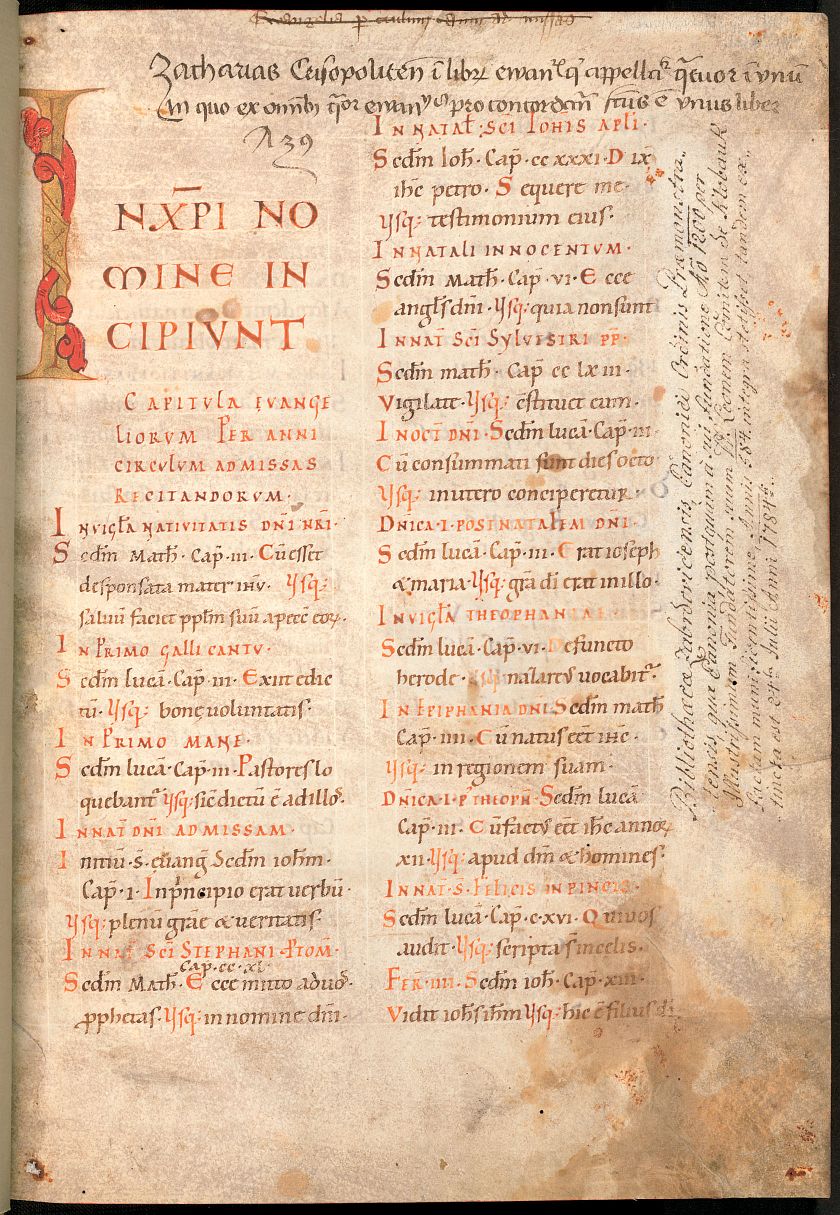 Zacharias Crisopoliten̄ ī libr̄ ewan̄ qͥ appellat̄ qͣtuor ī vnū
In quo ex omīb; qͣor ewan̄ pro concordcm̄ fcūs ē vnus liber
A 39
IN XP̄I NO
MINE IN
CIPIVNT
CAPITVLA EVANGE
LIORVM PER ANNI
CIRCVLVM AD MISSAS
RECITANDORVM·
IN VIGL̄A NATIVITATIS DN̄I NR̄I·
Sed̄m Math̄· Cap̄· iii· Cū esset
desponsata mater ihū· Vsq;
saluū faciet pplm̄ suū a pecc̄ eoꝝ·
IN PRIMO GALLI CANTV·
Sed̄m lucā· Cap̄· iii· Exiit edic
tū· Vsq; bone voluntatis·
IN PRIMO MANE·
Sed̄m lucā· Cap̄· iii· Pastores lo
quebant᷑ Vsq; sic̄ dictū ē ad illos·
IN NAT̄ DN̄I AD MISSAM·
Initiū· s̄· euanḡ Sed̄m ioh̄m·
Cap̄· i· In pͥncipio erat uerbū·
Vsq; plenū grāe & ueritatis·
IN NAT̄ SC̄I STEPHANI PTOM̄·
Cap· cc· xl·
Sed̄m Math̄· Ecce mitto ad uos
ꝓphetas· Vsq; in nomine dn̄i·
IN NATAL̄· SC̄I IOH̄IS APL̄I·
Sed̄m Ioh̄· Cap̄· cc xxxi· D ix̄
ih̄c petro· Sequere me·
Vsq; testimonium eius·
IN NATALI INNOCENTVM·
Sed̄m Math̄· Cap̄· vi· Ecce
angl̄s dn̄i· Vsq; quia non sunt
IN NAT̄ SC̄I SYLVESTRI PP̄·
Sed̄m math̄· Cap̄ cc lx iii·
Vigilate· Vsq; c̄stituet eum·
IN OCT̄ DN̄I· Sed̄m lucā· Cap̄· iii·
Cū consummati sunt dies octo
Vsq; in utero conciperetur·
DN̄ICA· I· POST NATALEM DN̄I·
Sed̄m lucā· Cap̄· iii· Erat ioseph
& maria· Vsq; grā dī erat in illo·
IN VIGL̄A THEOPHANIAE·
Sed̄m lucā· Cap̄· vi· Defuncto
herode· Vsq; nazareus uocabit᷑·
IN EPIPHANIA DN̄I· Sed̄m math̄
Cap̄· iiii· Cū natus eēt ih̄c·
Vsq; in regionem suam·
DN̄ICA· I· P᷒ THEOPH̄· Sed̄m lucā
Cap̄· iii· Cū factus eēt ih̄c annoꝝ
xii· Vsq; apud dm̄ & homines·
IN NAT̄· S̄· FELICIS IN PINCIS·
Sed̄m lucā· Cap̄· c· xvi· Qui uos
audit· Vsq; scripta s̄ in celis·
FER̄· IIII· Sed̄m ioh̄· Cap̄· xiii·
Vidit ioh̄s ih̄m Vsq; hic ē filius dī·
Bibliothecæ Zabrdovicensis, Canoniæ Ordinis Præmonstra,
tensis, quæ Canonia postquam a sui fundatione Aō 1200 per
Illustrissimum Fundatorem suum D. Leonem Comitem de Klobauk
factam munificentissime, Annis 584 integra stetisset, tandem ex,
tincta est 24ta Julii Anni 1784ti.